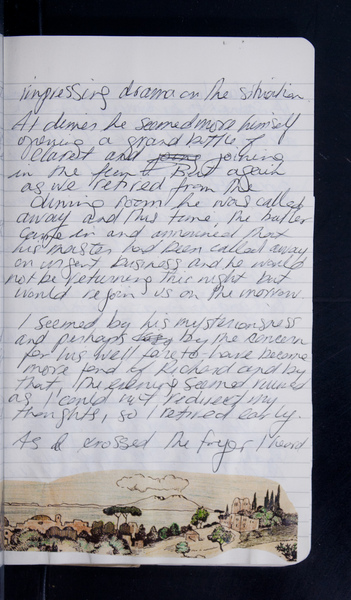 impressing drama on the situation.
At dinner he seemed more himself
opening a grand bottle of
Claret and joining
in the fun. But again
as we retired from the
dinning room he was called
away and this time, the butler
came in and announced that
his master had been called away
on urgent business and he would
not be returning this night but
would rejoin us on the morrow.
I seemed by his mysteriousness
and perhaps by the concern
for his wellfare to have become
more fond of Richard and by
that, the evening seemed ruined
as I could not redirect my
thoughts, so I retired early.
As I crossed the foyer I heard